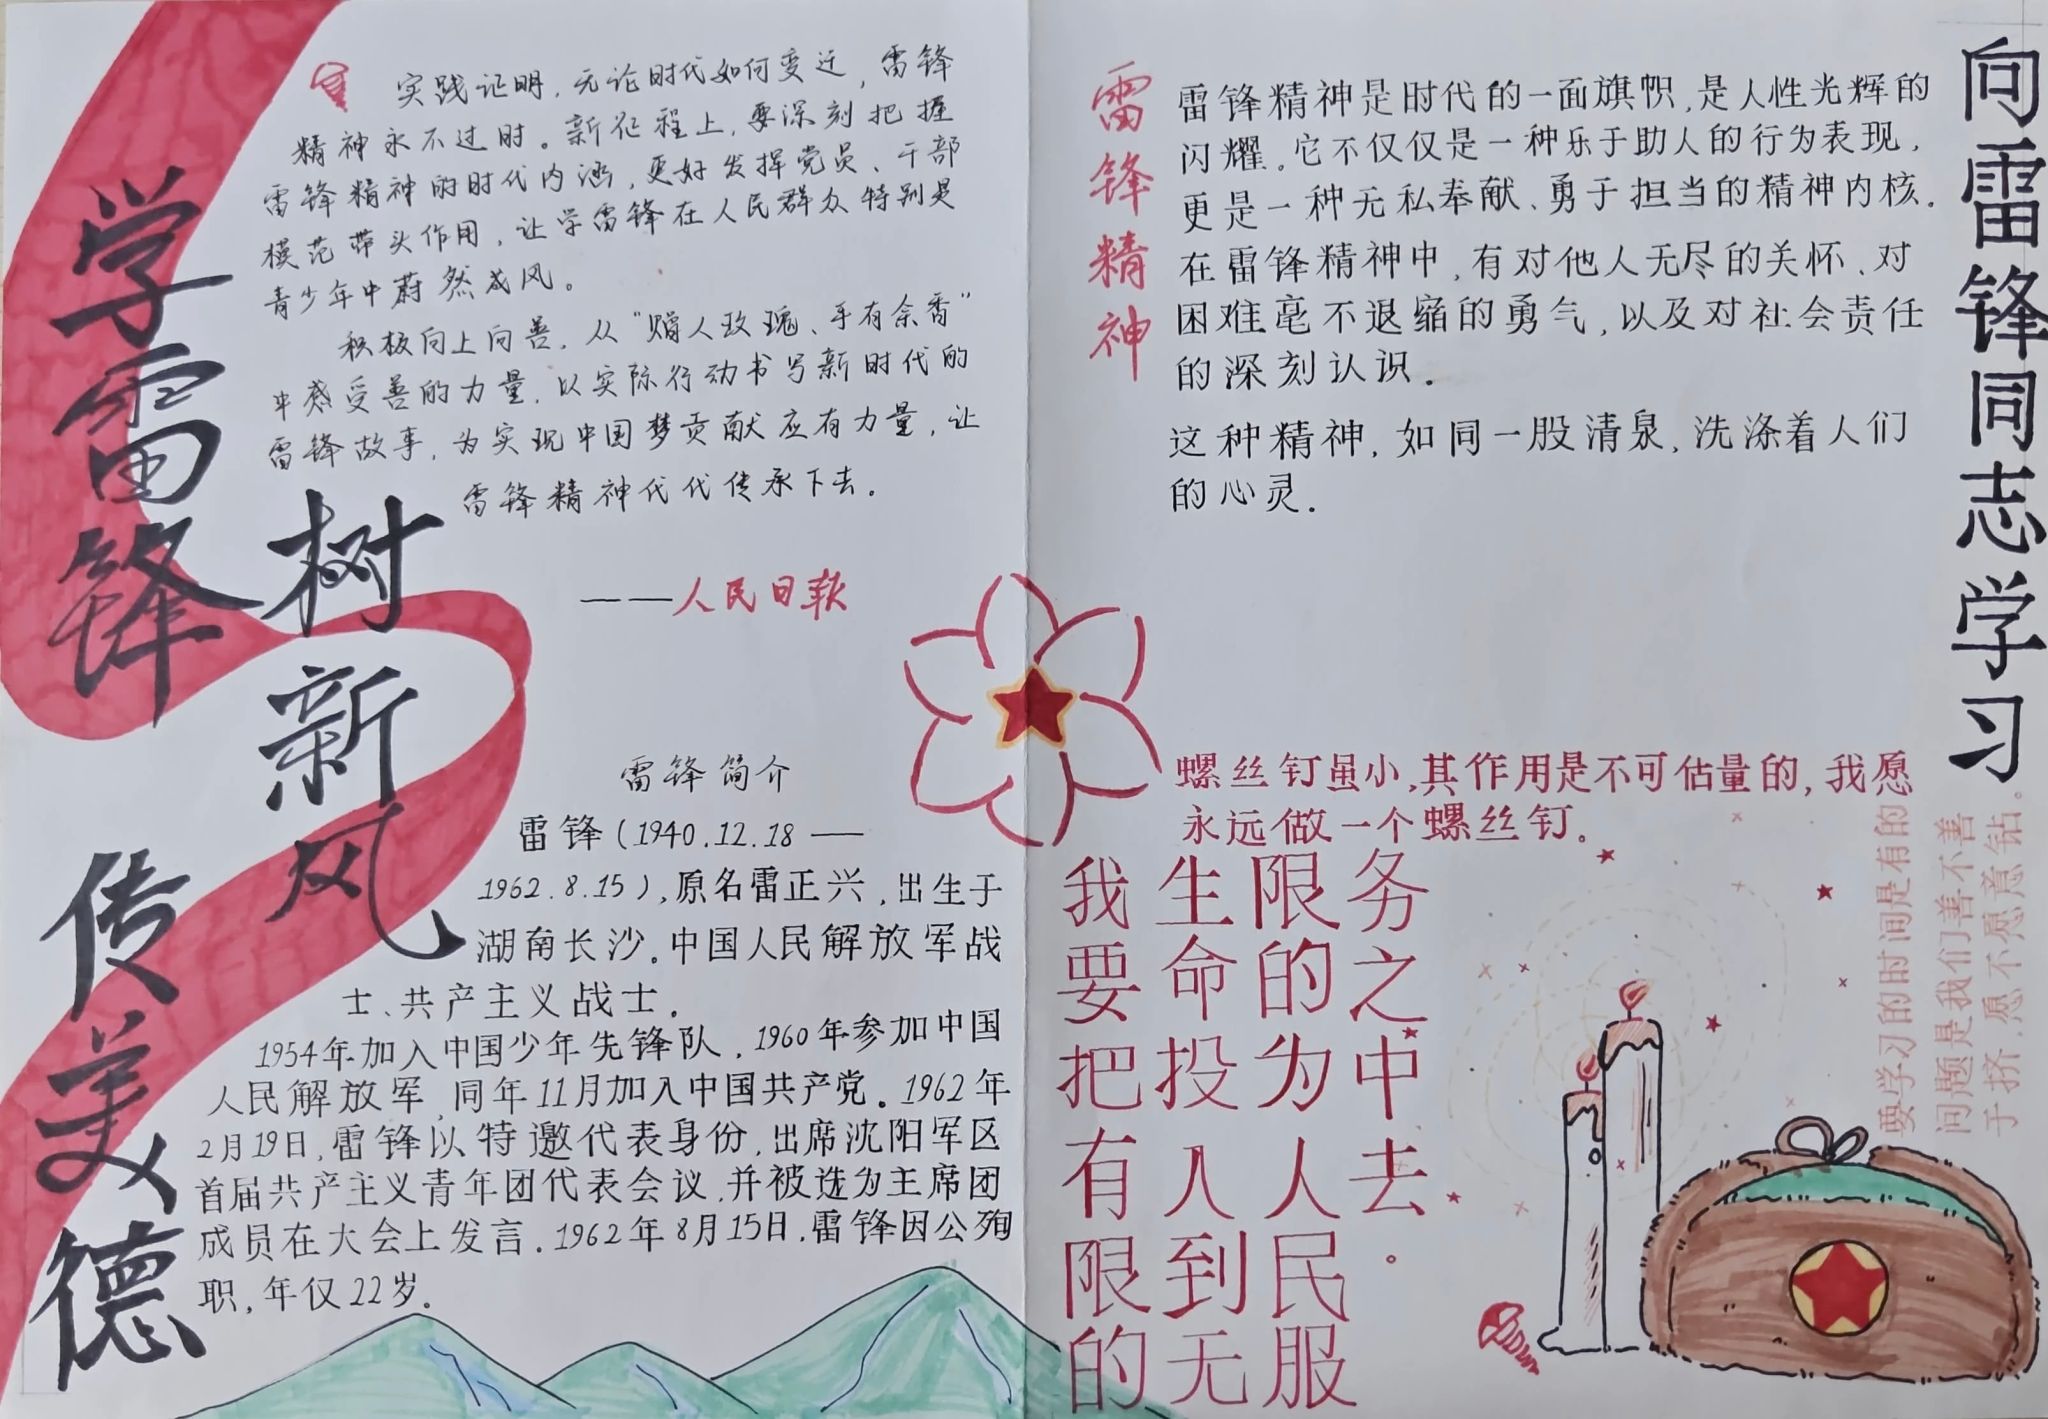 学雷锋
树新风
传美德
实践证明，无论时代如何变迁，雷锋
精神永不过时。新征程上，要深刻把握
雷锋精神的时代内涵，更好发挥党员、干部
模范带头作用，让学雷锋在人民群众特别是
青少年中蔚然成风。
积极向上向善，从“赠人玫瑰、手有余香”
中感受善的力量，以实际行动书写新时代的
雷锋故事，为实现中国梦贡献应有力量，让
雷锋精神代代传承下去。
——人民日报
雷锋简介
雷锋(1940.12.18——
1962.8.15)，原名雷正兴，出生于
湖南长沙。中国人民解放军战
士、共产主义战士。
1954年加入中国少年先锋队，1960年参加中国
人民解放军，同年11月加入中国共产党。1962年
2月19日，雷锋以特邀代表身份，出席沈阳军区
首届共产主义青年团代表会议，并被选为主席团
成员在大会上发言。1962年8月15日，雷锋因公殉
职，年仅22岁。
雷锋精神
雷锋精神是时代的一面旗帜，是人性光辉的
闪耀。它不仅仅是一种乐于助人的行为表现，
更是一种无私奉献、勇于担当的精神内核。
在雷锋精神中，有对他人无尽的关怀、对
困难毫不退缩的勇气，以及对社会责任
的深刻认识。
这种精神，如同一股清泉，洗涤着人们
的心灵。
向雷锋同志学习
螺丝钉虽小，其作用是不可估量的，我愿
永远做一个螺丝钉。
我要把有限的
生命投入到无
限的为人民服
务之中去。
要学习的时间是有的
问题是我们善不善
于挤，愿不愿意钻。